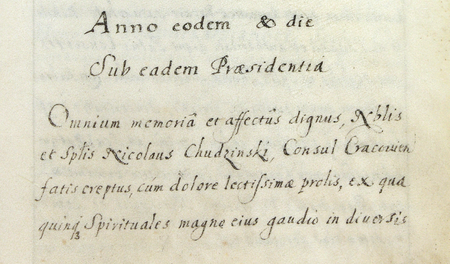 Anno eodem & die
Sub eadem Præsidentia
Omnium memoriâ et affectûs dignus, Nblis
et Splis Nicolaus Chudzinski, Consul Cracovien
fatis ereptus, cùm dolore lectissimæ prolis, ex qua
quinqȝ Spirituales magno eius gaudio in diversis